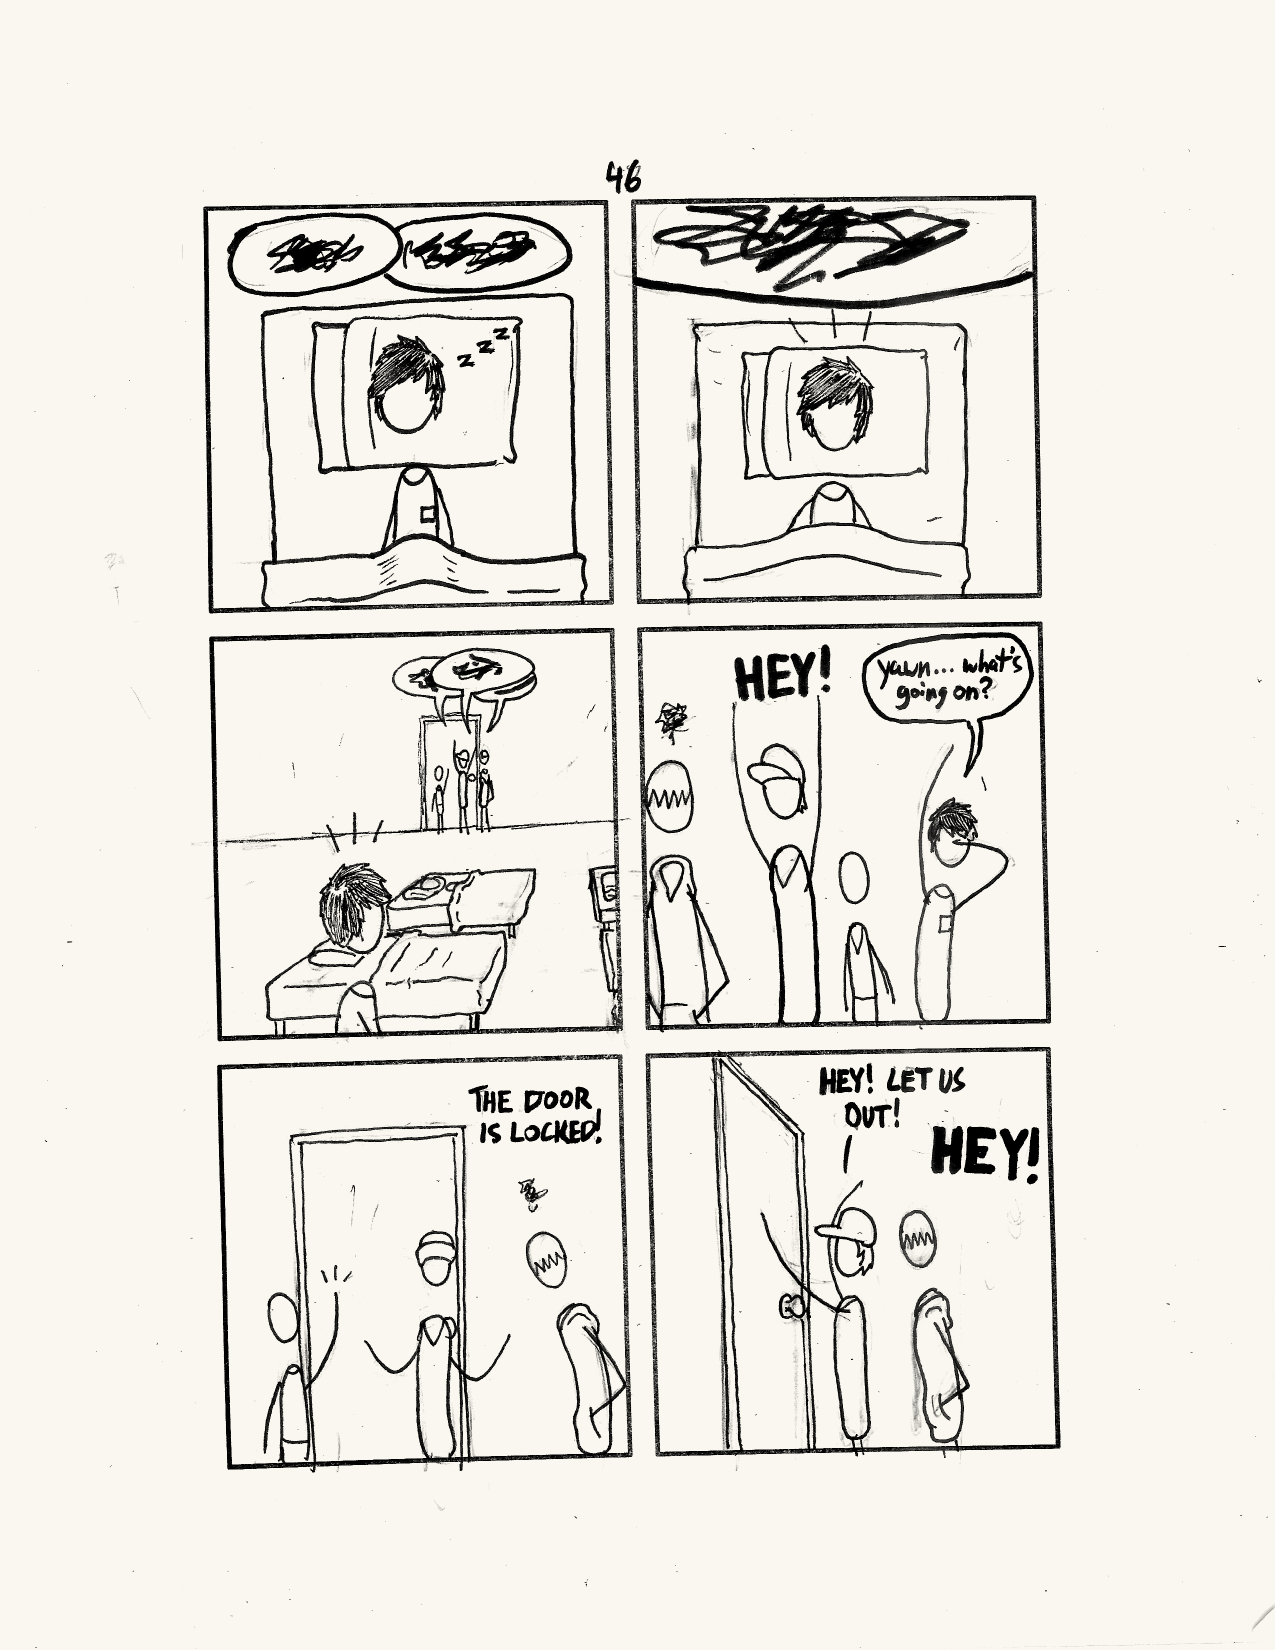 46
z z z
HEY!
yawn... what's
going on?
THE DOOR
IS LOCKED!
HEY! LET US
OUT!
HEY!